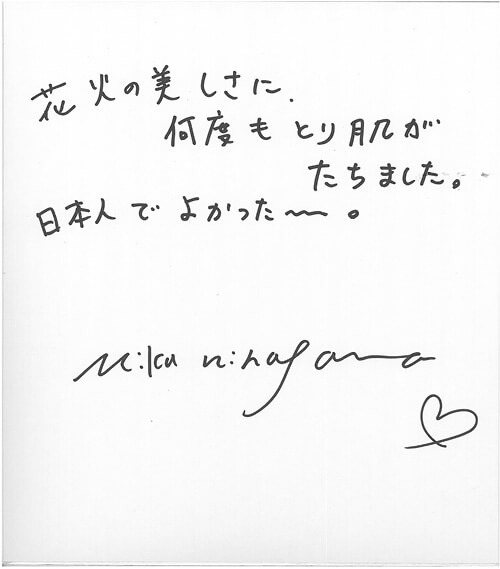 花火の美しさに、
何度もとり肌が
たちました。
日本人でよかった〜。
Mika Ninagawa